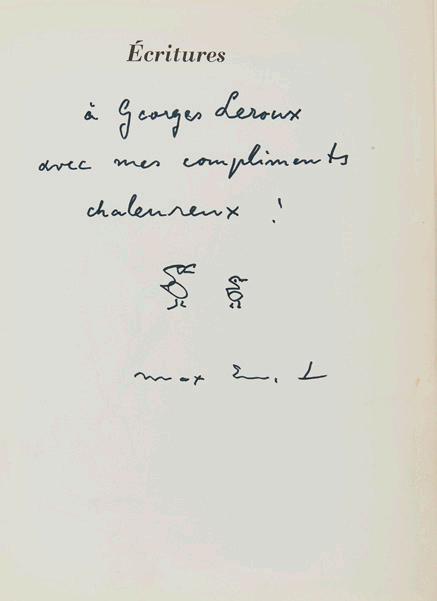 Écritures
à Georges Leroux
avec mes compliments
chaleureux !
max Ernst